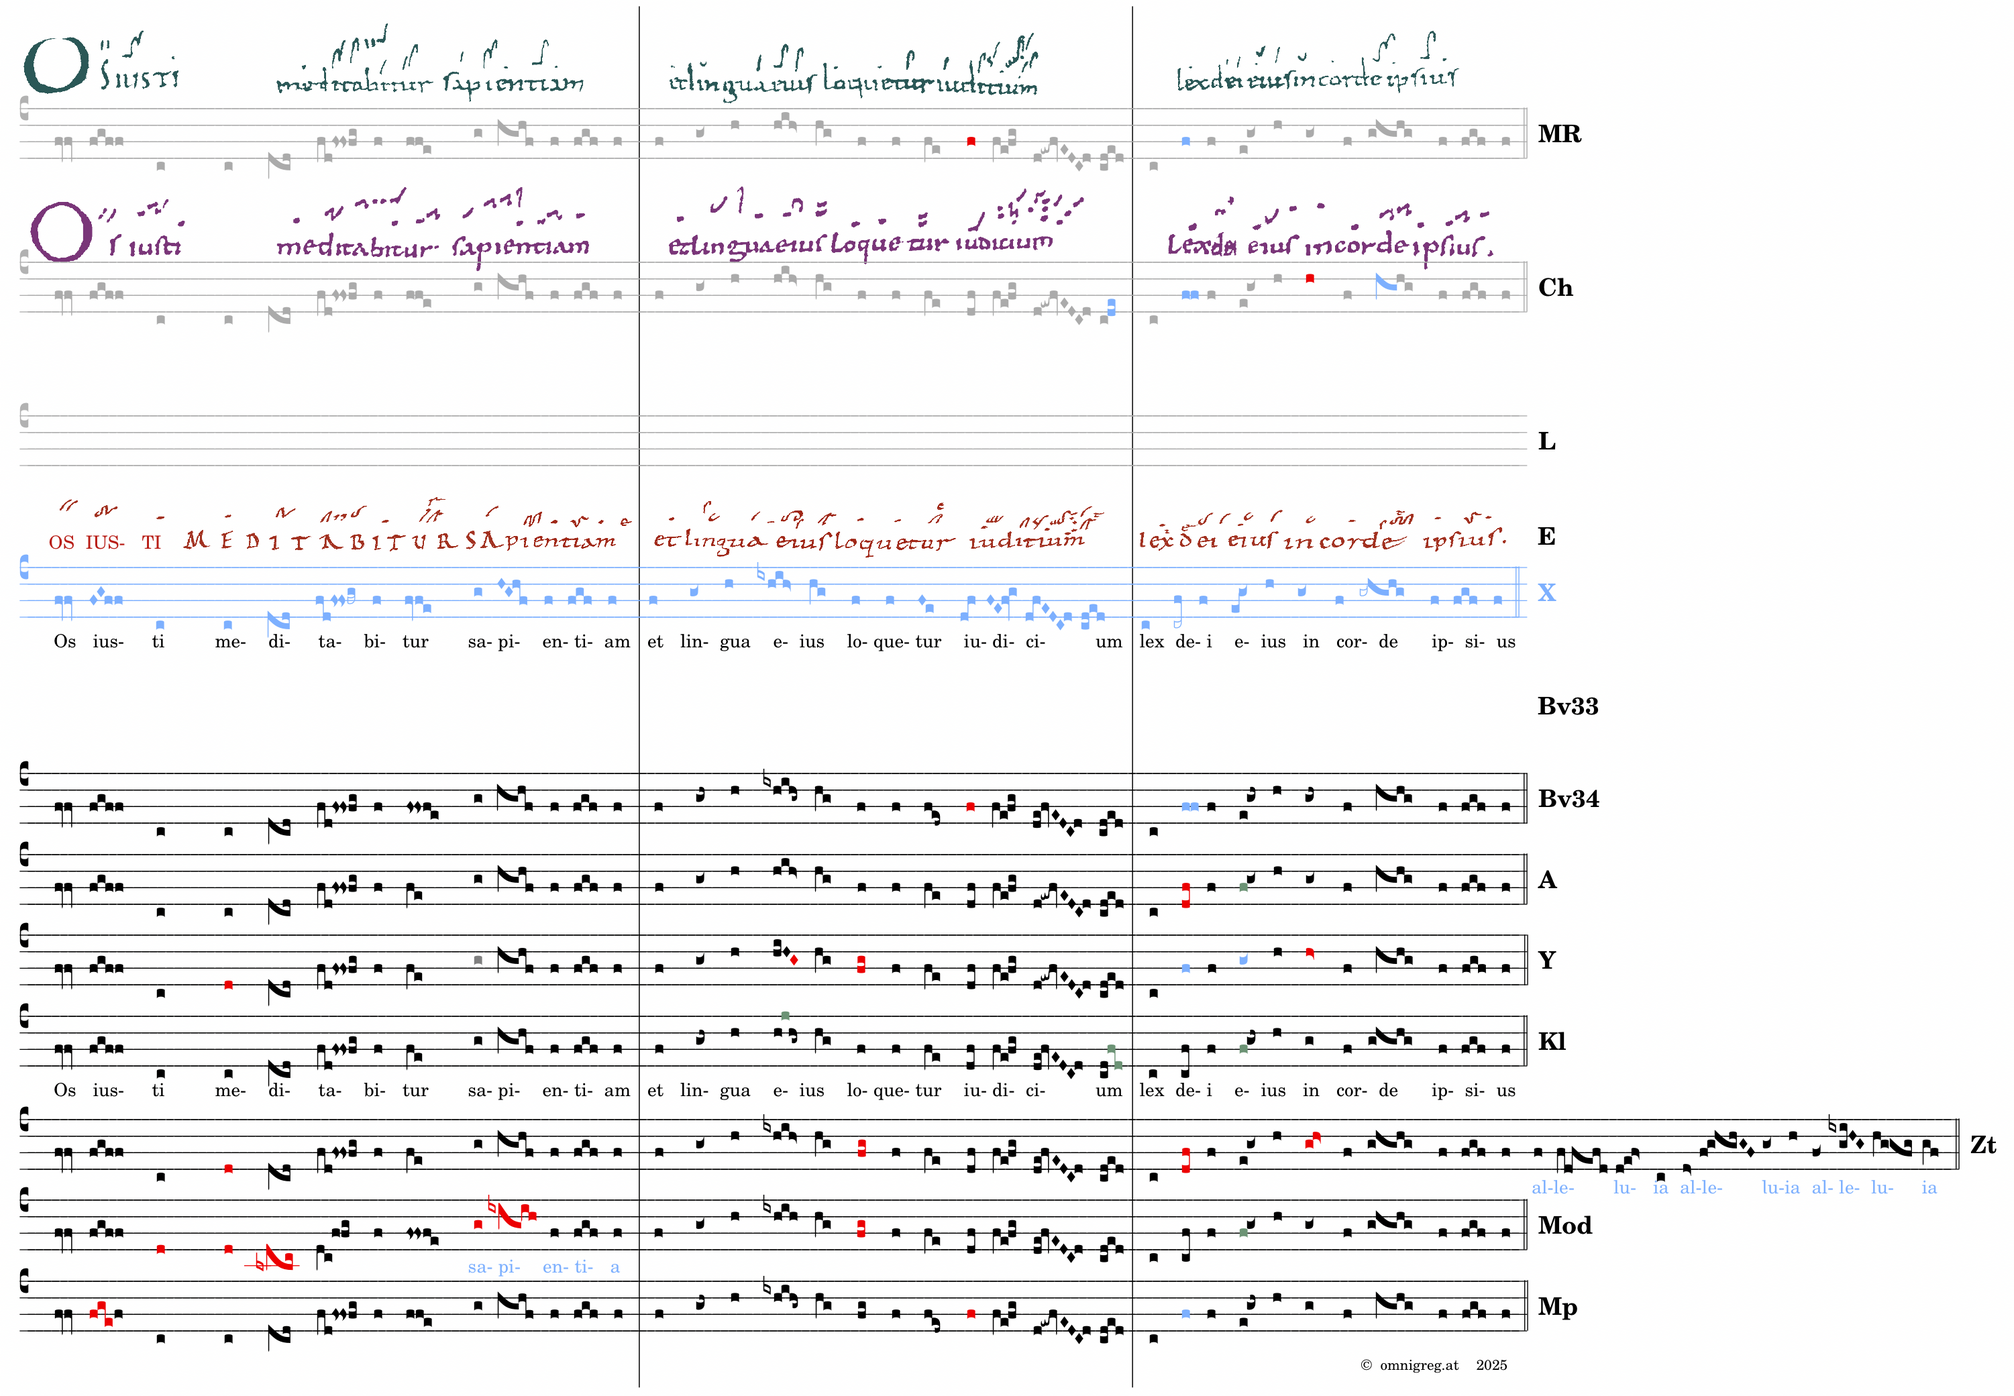 OS iusti meditabitur sapientiam et lingua eius loquetur iuditium lex dei eius in corde ipsius
MR
OS iusti meditabitur sapientiam et lingua eius loquetur iudicium lex dei eius in corde ipsius.
Ch
L
OS IUS- TI MEDITABITUR SApientiam et lingua eius loquetur iuditium lex dei eius in corde ipsius.
E
X
Os ius- ti me- di- ta- bi- tur sa- pi- en- ti- am et lin- gua e- ius lo- que- tur iu- di- ci- um lex de- i e- ius in cor- de ip- si- us
Bv33
Bv34
A
Y
Kl
Os ius- ti me- di- ta- bi- tur sa- pi- en- ti- am et lin- gua e- ius lo- que- tur iu- di- ci- um lex de- i e- ius in cor- de ip- si- us
Zt
al-le- lu- ia al-le- lu-ia al- le- lu- ia
Mod
sa- pi- en- ti- a
Mp
© omnigreg.at 2025